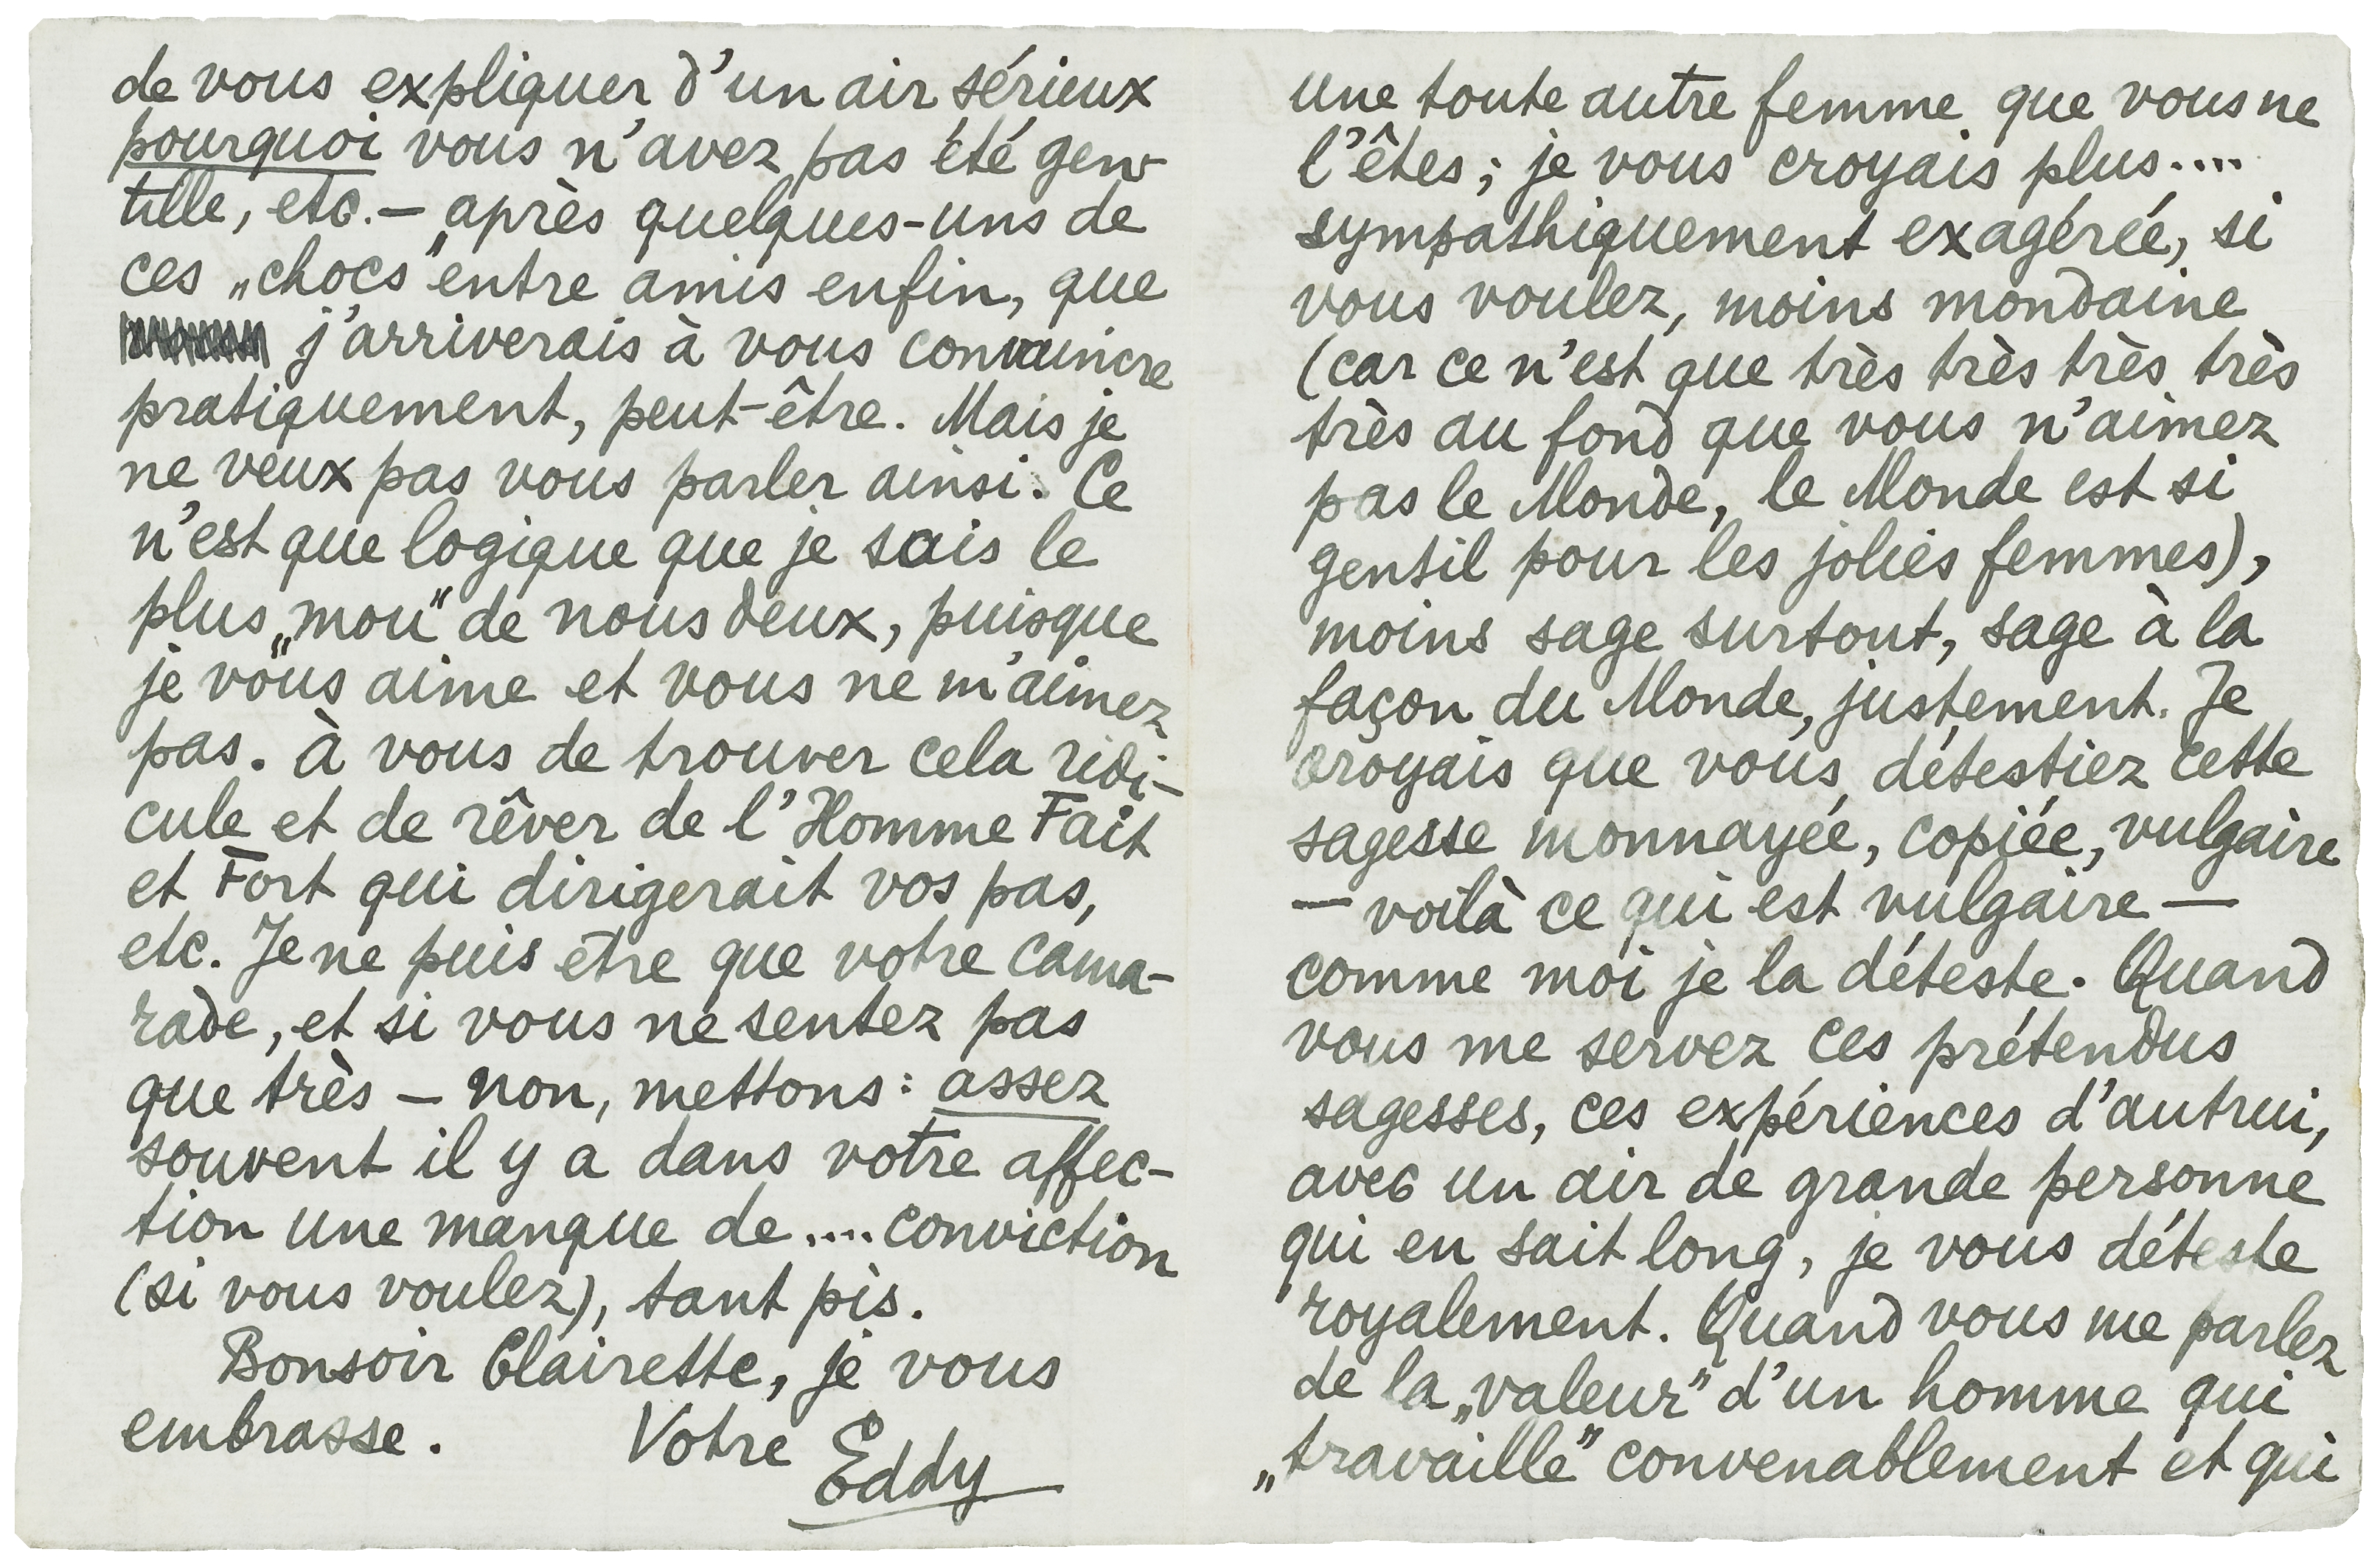 de vous expliquer d'un air sérieux
pourquoi vous n'avez pas été gen-
tille, etc. — après quelques-uns de
ces „chocs" entre amis enfin, que
j'arriverais à vous convaincre
pratiquement, peut-être. Mais je
ne veux pas vous parler ainsi. Ce
n'est que logique que je sais le
plus „mou" de nous deux, puisque
je vous aime et vous ne m'aimez
pas. À vous de trouver cela ridi-
cule et de rêver de l'Homme Fait
et Fort qui dirigerait vos pas,
etc. Je ne puis être que votre cama-
rade, et si vous ne sentez pas
que très — non, mettons: assez
souvent il y a dans votre affec-
tion une manque de .... conviction
(si vous voulez), tant pis.
Bonsoir Clairette, je vous
embrasse. Votre Eddy
une toute autre femme que vous ne
l'êtes; je vous croyais plus....
sympathiquement exagérée, si
vous voulez, moins mondaine
(car ce n'est que très très très très
très au fond que vous n'aimez
pas le Monde, le Monde est si
gentil pour les jolies femmes),
moins sage surtout, sage à la
façon du Monde, justement. Je
croyais que vous détestiez cette
sagesse monnayée, copiée, vulgaire
— voilà ce qui est vulgaire —
comme moi je la déteste. Quand
vous me servez ces prétendus
sagesses, ces expériences d'autrui,
avec un air de grande personne
qui en sait long, je vous déteste
royalement. Quand vous me parlez
de la „valeur" d'un homme qui
„travaille" convenablement et qui